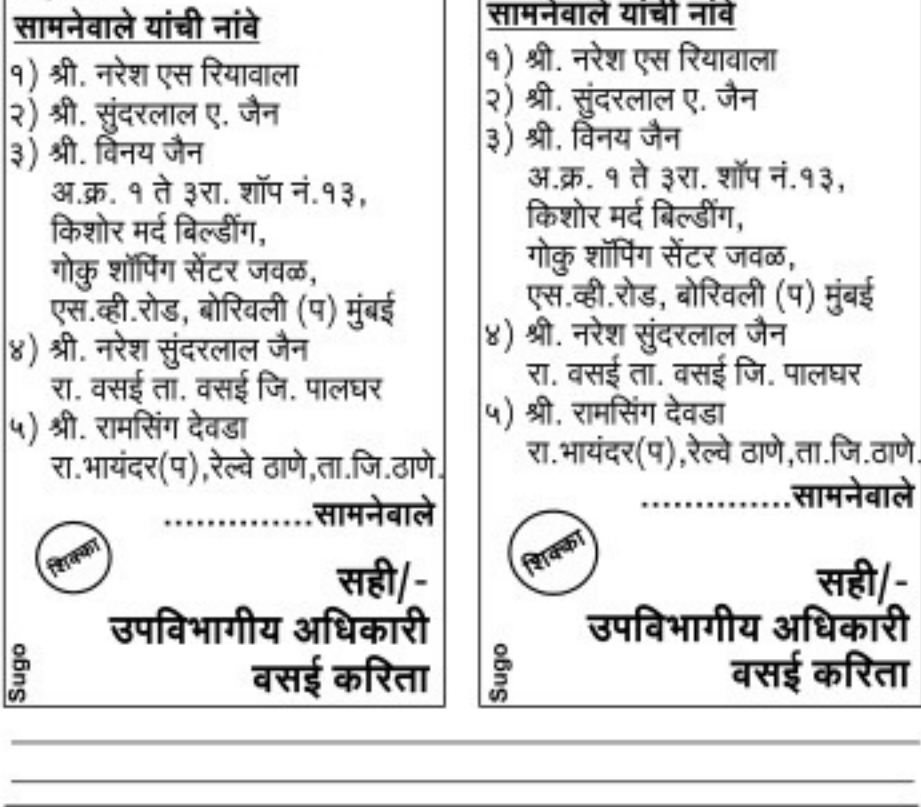 सामनेवाले यांची नांवे
१) श्री. नरेश एस रियावाला
२) श्री. सुंदरलाल ए. जैन
३) श्री. विनय जैन
अ.क्र. १ ते ३रा. शॉप नं.१३,
किशोर मर्द बिल्डींग,
गोकु शॉपिंग सेंटर जवळ,
एस.व्ही.रोड, बोरिवली (प) मुंबई
४) श्री. नरेश सुंदरलाल जैन
रा. वसई ता. वसई जि. पालघर
५) श्री. रामसिंग देवडा
रा.भायंदर(प),रेल्वे ठाणे,ता.जि.ठाणे.
..............सामनेवाले
शिक्का
सही/-
उपविभागीय अधिकारी
वसई करिता
Sugo
सामनेवाले यांची नांवे
१) श्री. नरेश एस रियावाला
२) श्री. सुंदरलाल ए. जैन
३) श्री. विनय जैन
अ.क्र. १ ते ३रा. शॉप नं.१३,
किशोर मर्द बिल्डींग,
गोकु शॉपिंग सेंटर जवळ,
एस.व्ही.रोड, बोरिवली (प) मुंबई
४) श्री. नरेश सुंदरलाल जैन
रा. वसई ता. वसई जि. पालघर
५) श्री. रामसिंग देवडा
रा.भायंदर(प),रेल्वे ठाणे,ता.जि.ठाणे.
..............सामनेवाले
शिक्का
सही/-
उपविभागीय अधिकारी
वसई करिता
Sugo